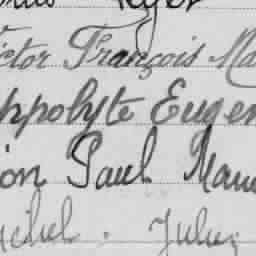 ctor François Ma
ppolyte Eugen
ion Paul Mau
ichel. Jules